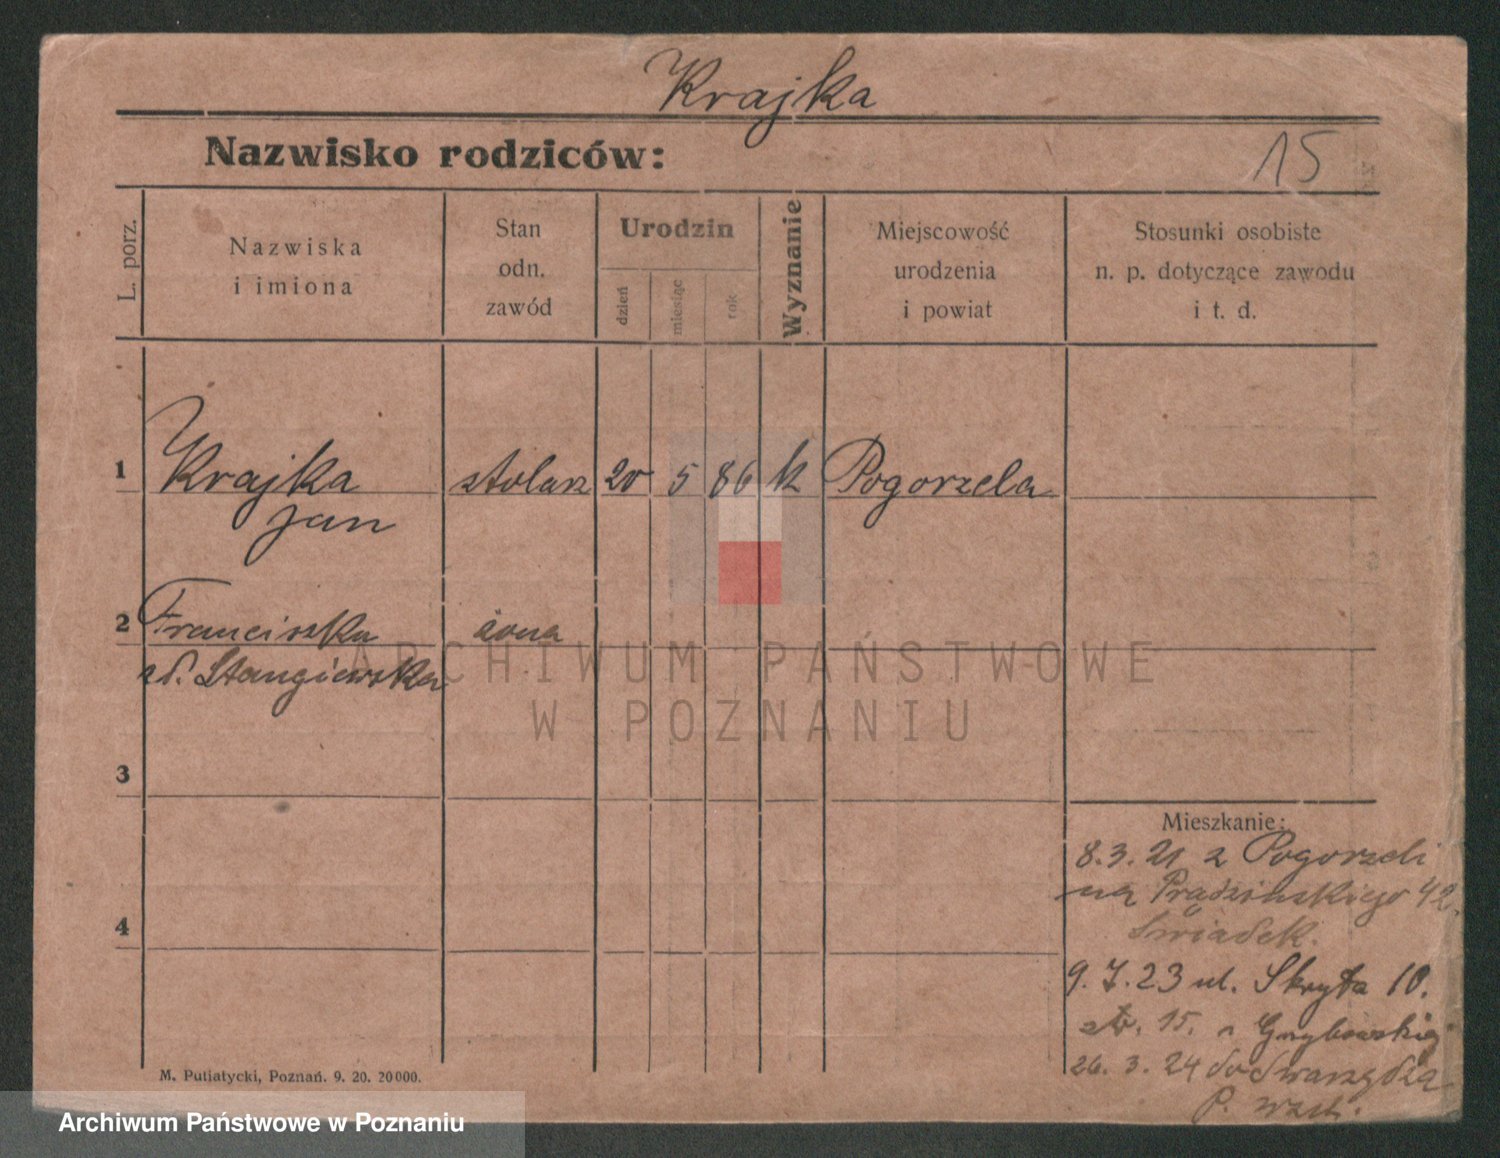 Krajka
Nazwisko rodziców:
15
L. porz.
Nazwiska
i imiona
Stan
odn.
zawód
Urodzin
dzień
miesiąc
rok
Wyznanie
Miejscowość
urodzenia
i powiat
Stosunki osobiste
n. p. dotyczące zawodu
i t. d.
1
Krajka stolarz 20 5 86 k Pogorzela
Jan
2
Franciszka żona
Stangiewska
3
4
Mieszkanie:
8.3.21 z Pogorzeli
na Prądzinskiego 42.
Świadek.
9.7.23 ul. Skryta 10.
str. 15.
26.3.24 do Swarzędza
M. Putiatycki, Poznań. 9. 20. 20000.
ARCHIWUM PAŃSTWOWE
W POZNANIU
Archiwum Państwowe w Poznaniu